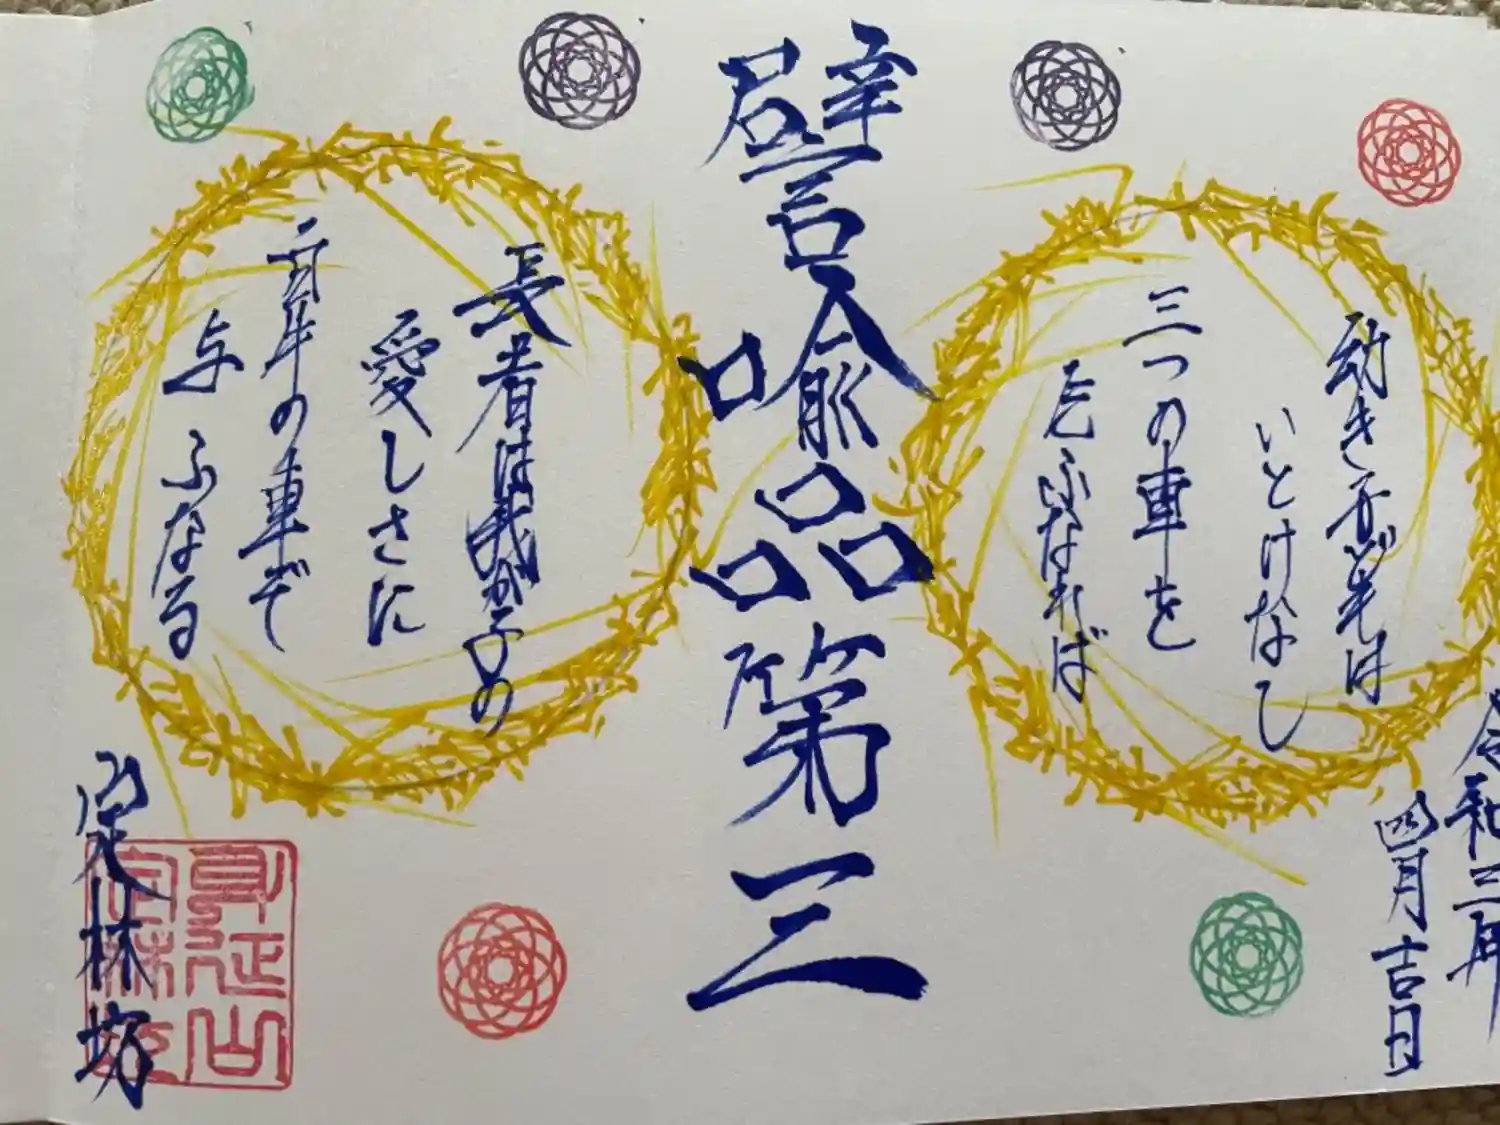 令和三年
四月吉日
幼き子どもは
いとけなし
三つの車を
乞ふなれば
譬喩品第三
長者は我が子の
愛しさに
白牛の車ぞ
与ふなる
定林坊
身延山
定林坊